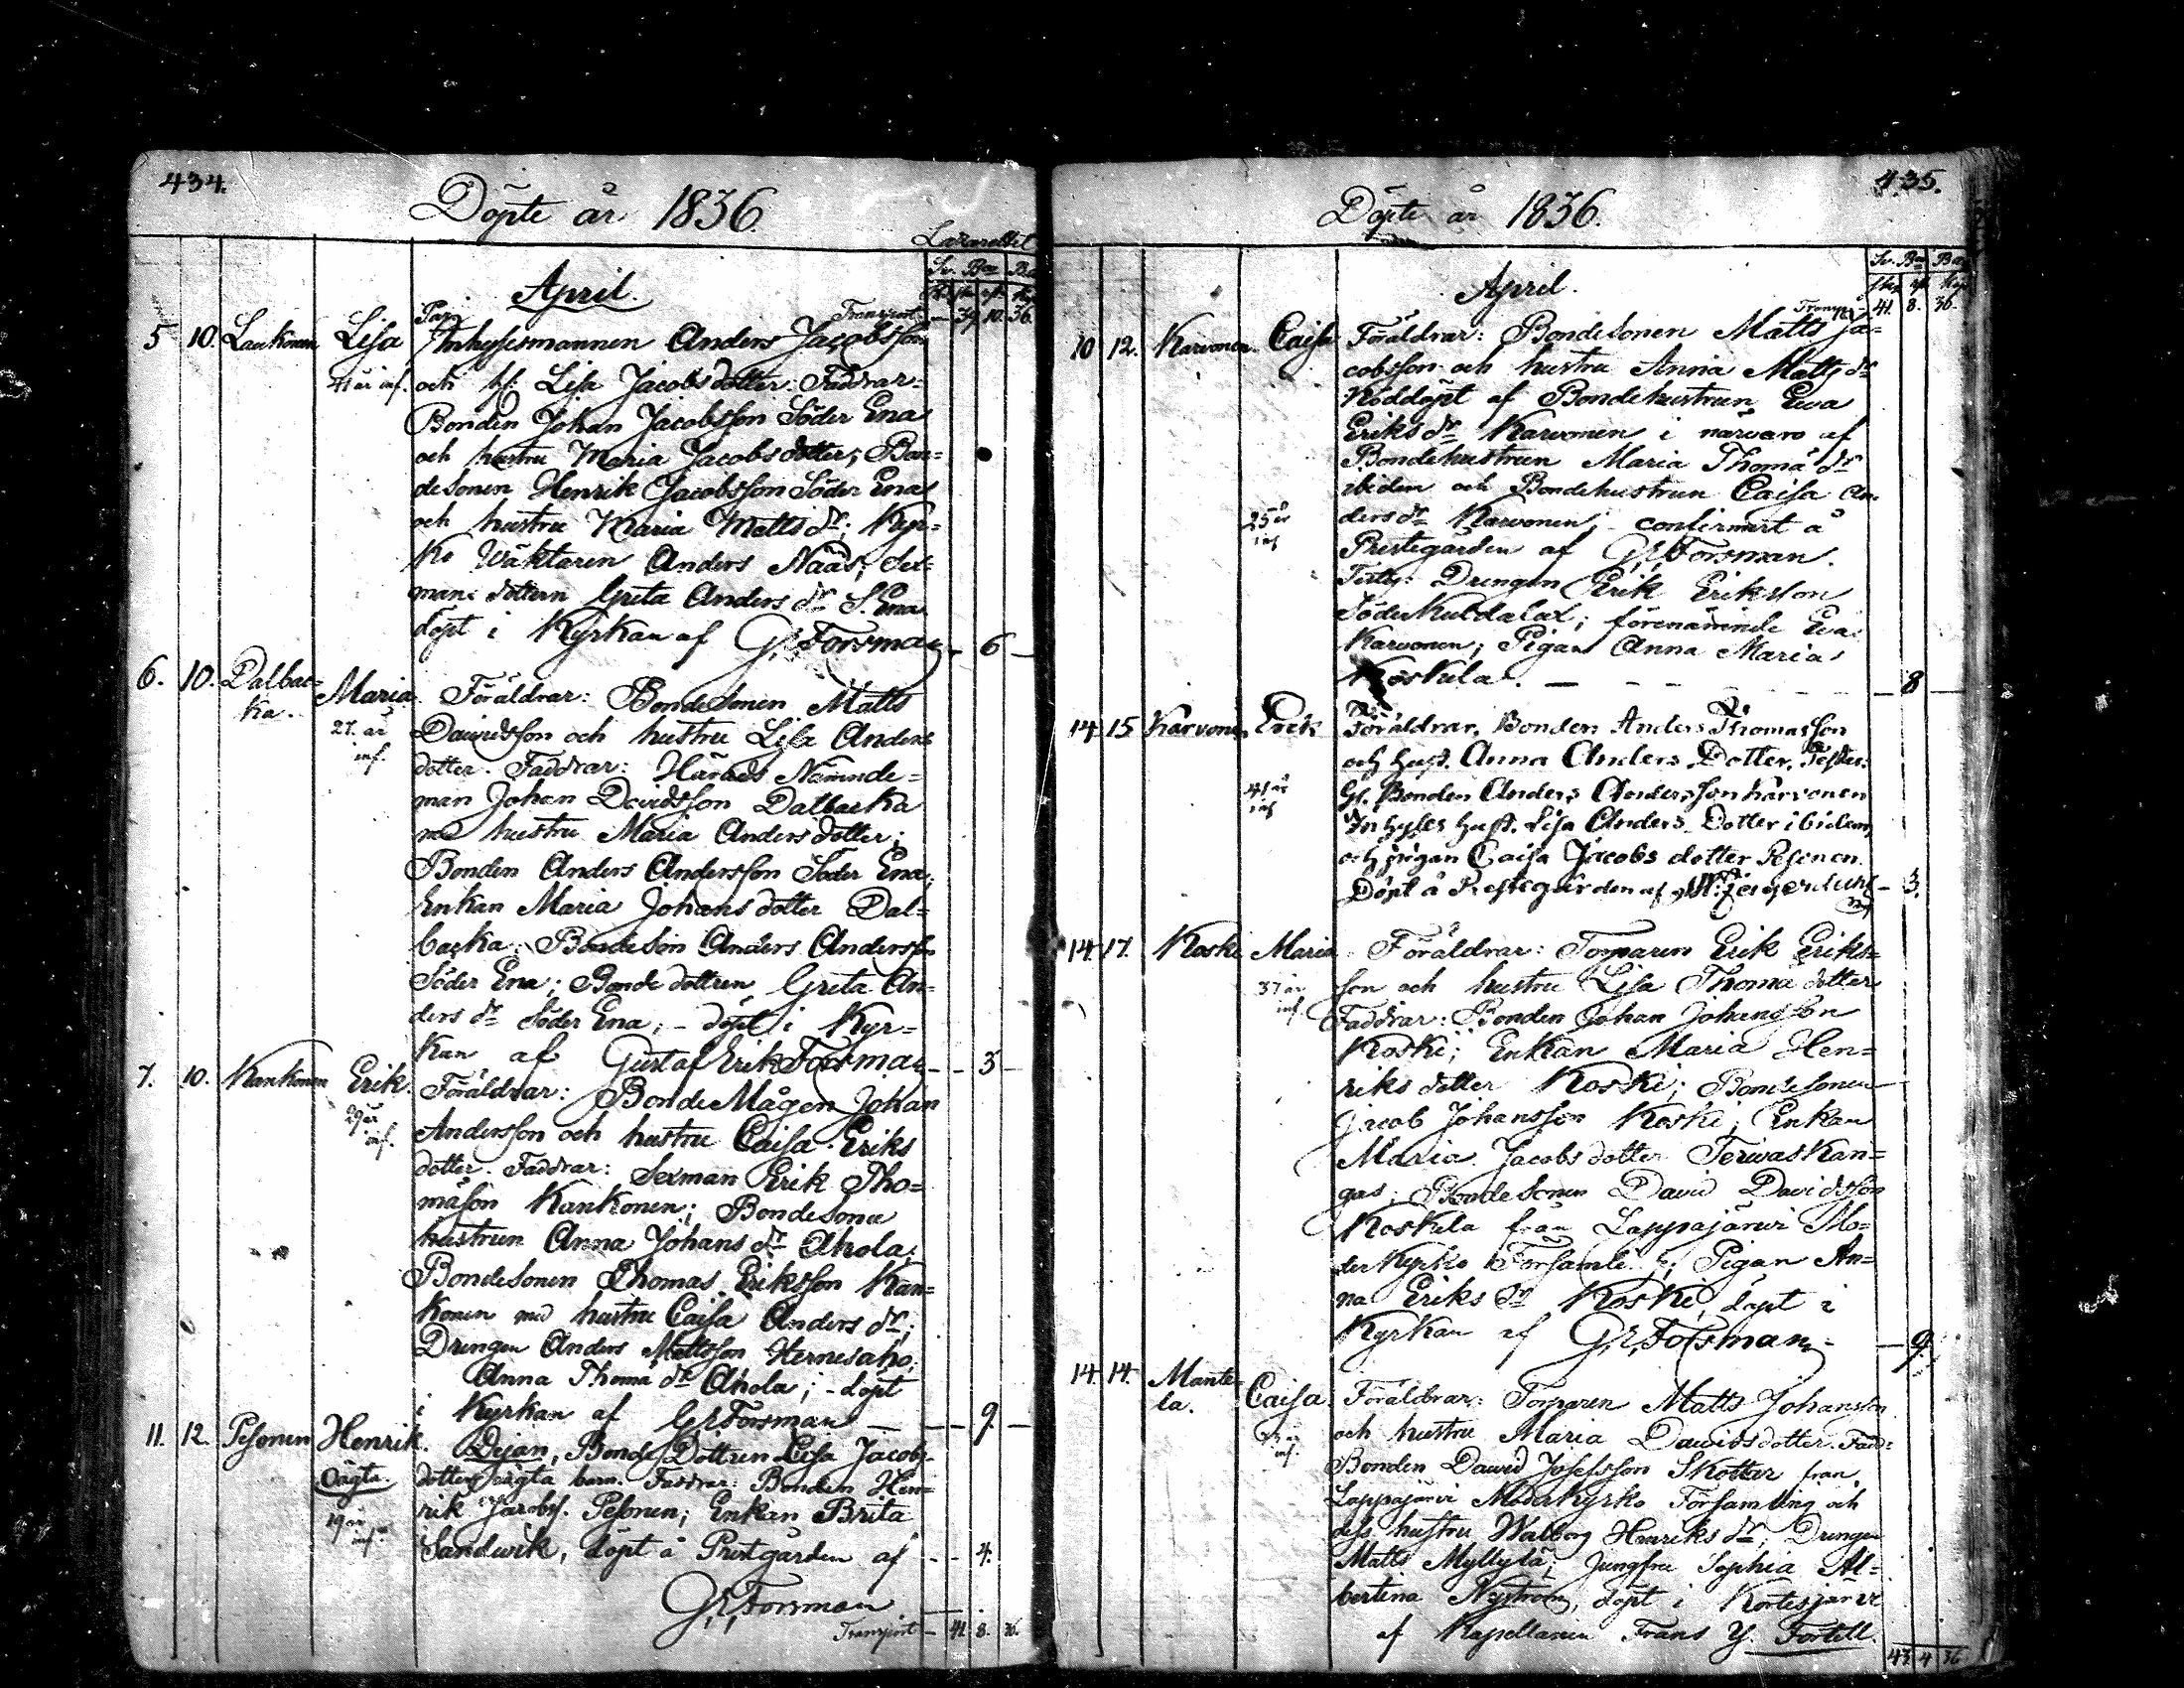 434.
Döpte år 1836.
Lazarettet
Sv. Bco
April.
Transport — 39. 10. 36.
5 10. Laukonen Lisa Inhysesmannen Anders Jacobsson
41 år inf. och h: Lisa Jacobsdotter. Faddrar:
Bonden Johan Jacobsson Söder Ena
och hustru Maria Jacobsdotter; Bon=
desonen Henrik Jacobsson Söder Ena
och hustru Maria Matts dr; Kyr=
ko Wäktaren Anders Nääs; Sex=
mans dottern Greta Anders dr S. Ena
döpt i Kyrkan af G.E. Forsman — 6 —
6. 10. Dalbac=
ka. Maria Föräldrar: Bondesonen Matts
27. år
inf. Davidsson och hustru Lisa Anders
dotter. Faddrar: Härads Nämnde=
man Johan Davidsson Dalbacka
med hustru Maria Anders dotter;
Bonden Anders Andersson Söder Ena;
Enkan Maria Johans dotter Dal=
backa; Bondeson Anders Andersson
Söder Ena; Bonde dottren Greta An=
ders dr Söder Ena; – döpt i Kyr=
kan af Gustaf Erik Forsman — — 3 —
7. 10. Kankonen Erik. Föräldrar: BondeMågen Johan
29 år
inf. Andersson och hustru Caisa Eriks
dotter. Faddrar: Sexman Erik Tho=
mason Kankonen; Bondesons
hustrun Anna Johans dr Ahola;
Bondesonen Thomas Eriksson Kan=
konen med hustru Caisa Anders dr;
Drengen Anders Mattsson Hernesaho;
Anna Thoma dr Ahola; – döpt
i Kyrkan af G.E. Forsman — — 9 —
11. 12. Pesonen Henrik. Pejan, Bonde Dottren Lisa Jacobs
Oägta. dotters oägta barn. Faddrar: Bonden Hen=
19 år
inf. rik Jacobs. Pesonen; Enkan Brita
Sandwik, döpt å Prestgården af — — 4.
G.E. Forsman
Transport — 41. 8. 36.
435.
Döpte år 1836.
Sv. Bco
April.
Transport 41. 8. 36.
10 12. Karvonen. Caisa Föräldrar: Bondesonen Matts Ja=
cobsson och hustru Anna Matts dr
Nöddöpt af Bondehustrun Ewa
Eriks dr Karvonen i närvaro af
Bondehustrun Maria Thoma dr
ibidem och Bondehustrun Caisa An=
25 år
inf ders dr Karvonen; – confirmert å
Prestegården af G.E. Forsman.
Testes: Drengen Erik Eriksson
Söderkuldalax; förenämnde Ewa
Karvonen; Pigan Anna Maria
Koskula. — — — — 8 —
14 15 Karvonen Erik Föräldrar, Bonden Anders Thomasson
och hust. Anna Anders Dotter, Testes:
41 år
inf Gl. Bonden Anders Andersson karvonen
Inhyses hust. Lisa Anders Dotter ibidem,
och pigan Caisa Jacobs dotter Pesonen.
Döpt å Prestegården af — 3.
14. 17. Koski Maria Föräldrar: Torparen Erik Eriks=
37 år
inf. son och hustru Lisa Thoma dotter
Faddrar: Bonden Johan Johansson
Koski; Enkan Maria Hen=
riks dotter Koski; Bondesonen
Jacob Johansson Koski; Enkan
Maria Jacobs dotter Terwaskan=
gas; Bondesonen David Davidsson
Koskela från Lappajärvi Mo=
derkyrko Församl.; Pigan An=
na Eriks dr Koski, döpt i
Kyrkan af G.E. Forsman. — 9.
14. 14. Mante=
la. Caisa Föräldrar: Torparen Matts Johansson
inf. och hustru Maria Davidsdotter. Fadd:
Bonden David Josefsson Skottar från
Lappajärvi Moderkyrko Församling och
dess hustru Walborg Henriks dr; Drengen
Matts Myllylä; Jungfru Sophia Al=
bertina Nyström, döpt i Kortesjärvi
af Kapellanen Frans Y. Fortell.
43 4 36